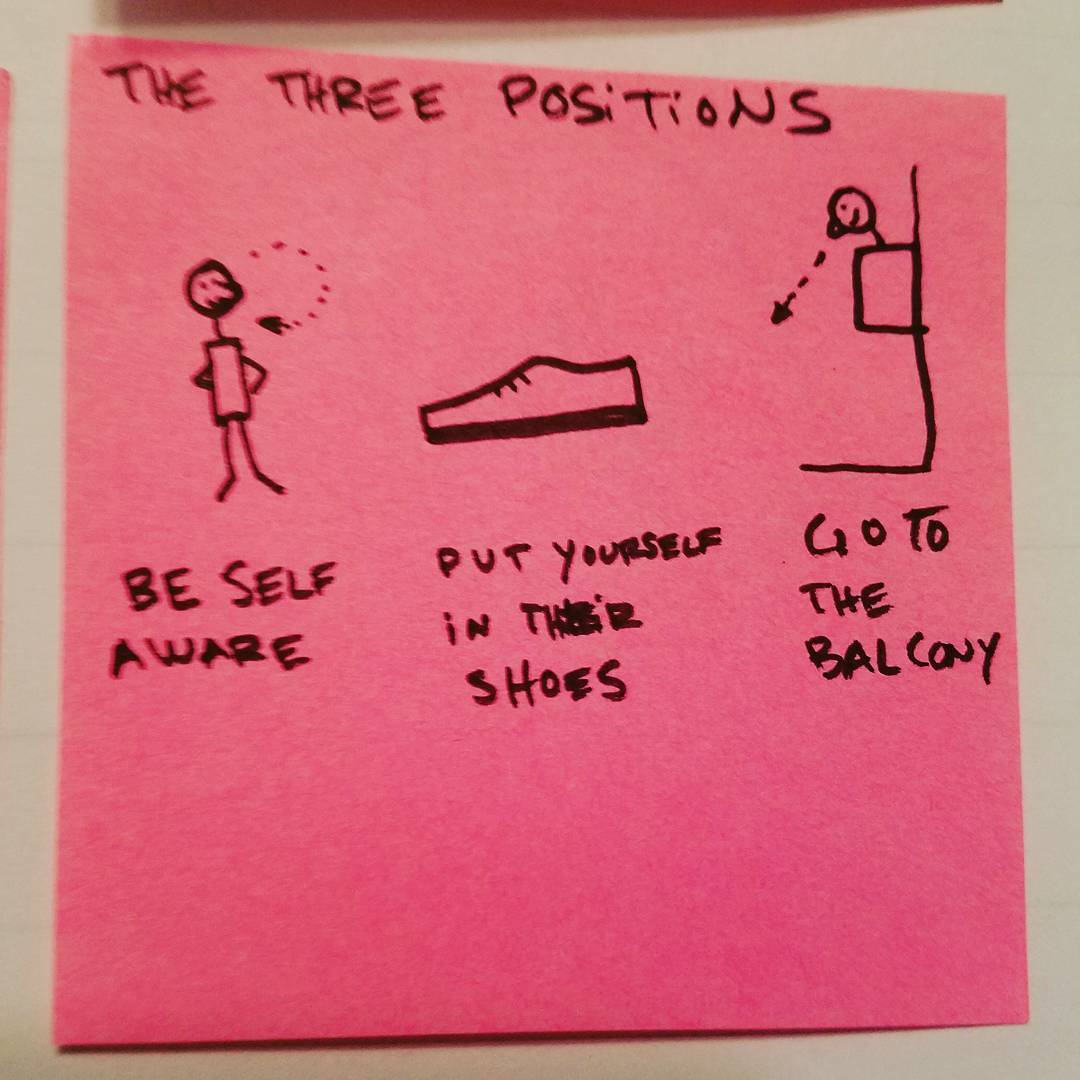 THE THREE POSiTiONS
BE SELF
AWARE
PUT YOURSELF
iN THEiR
SHOES
GO TO
THE
BALCONY